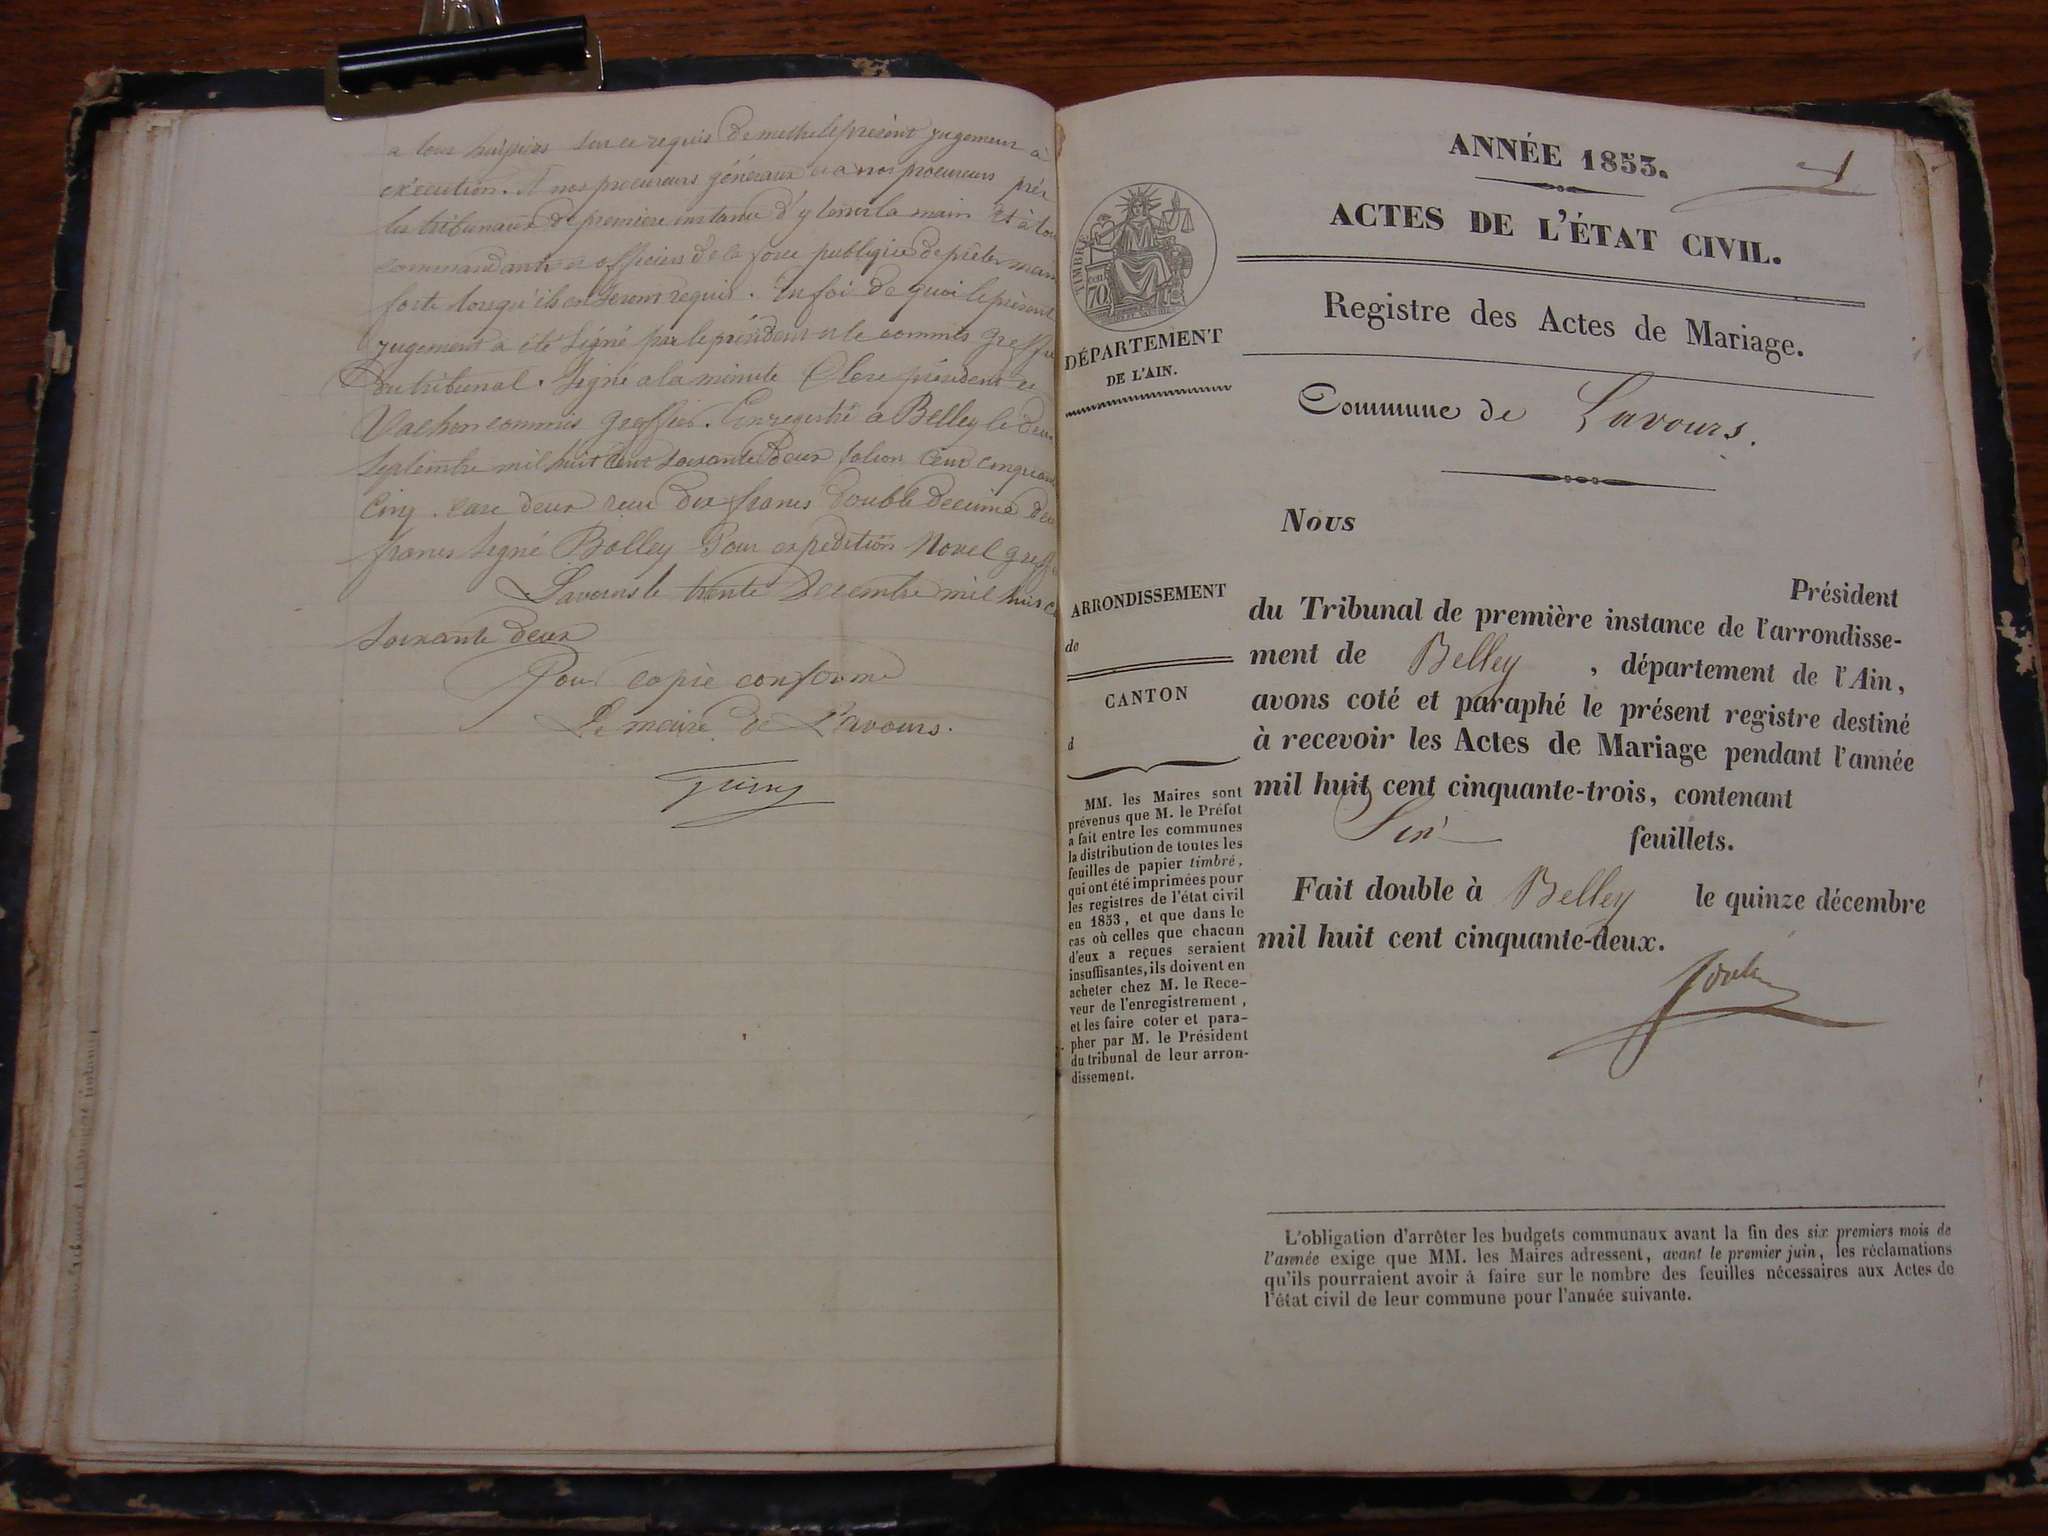 a tous huissiers sur ce requis de mettre le présent jugement à
exécution. A nos procureurs généraux et a nos procureurs près
les tribunaux de premiere instance d'y tenir la main Et à tou
commandants et officiers de la force publique de prêter main
forte lorsqu'ils en seront requis. En foi de quoi le présent
jugement a été signé par le président et le commis greffie
du tribunal. Signé a la minute président et
Vachon commis greffier. Enregistré a Belley le deux
septembre mil huit cent soixante deux folion cent cinquan
cinq. case deux recu dix francs double decime deu
francs signé Bolley Pour expedition Novel greffi
Lavours le trente Decembre mil huit c
soixante deux
Pour copie conforme
Le maire de Lavours.
ANNÉE 1853.
1
ACTES DE L'ÉTAT CIVIL.
Registre des Actes de Mariage.
Commune de Lavours.
TIMBRE
70
DÉPARTEMENT
DE L'AIN.
ARRONDISSEMENT
de
CANTON
d
MM. les Maires sont
prévenus que M. le Préfet
a fait entre les communes
la distribution de toutes les
feuilles de papier timbré,
qui ont été imprimées pour
les registres de l'état civil
en 1853, et que dans le
cas où celles que chacun
d'eux a reçues seraient
insuffisantes, ils doivent en
acheter chez M. le Rece-
veur de l'enregistrement,
et les faire coter et para-
pher par M. le Président
du tribunal de leur arron-
dissement.
Nous
Président
du Tribunal de première instance de l'arrondisse-
ment de Belley, département de l'Ain,
avons coté et paraphé le présent registre destiné
à recevoir les Actes de Mariage pendant l'année
mil huit cent cinquante-trois, contenant
Six feuillets.
Fait double à Belley le quinze décembre
mil huit cent cinquante-deux.
L'obligation d'arrêter les budgets communaux avant la fin des six premiers mois de
l'année exige que MM. les Maires adressent, avant le premier juin, les réclamations
qu'ils pourraient avoir à faire sur le nombre des feuilles nécessaires aux Actes de
l'état civil de leur commune pour l'année suivante.